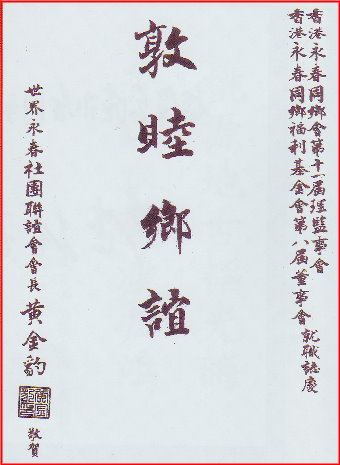 香港永春同鄉會第十一屆理監事會
香港永春同鄉福利基金會第八屆董事會就職誌慶
敦睦鄉誼
世界永春社團聯誼會會長黃金豹
敬賀